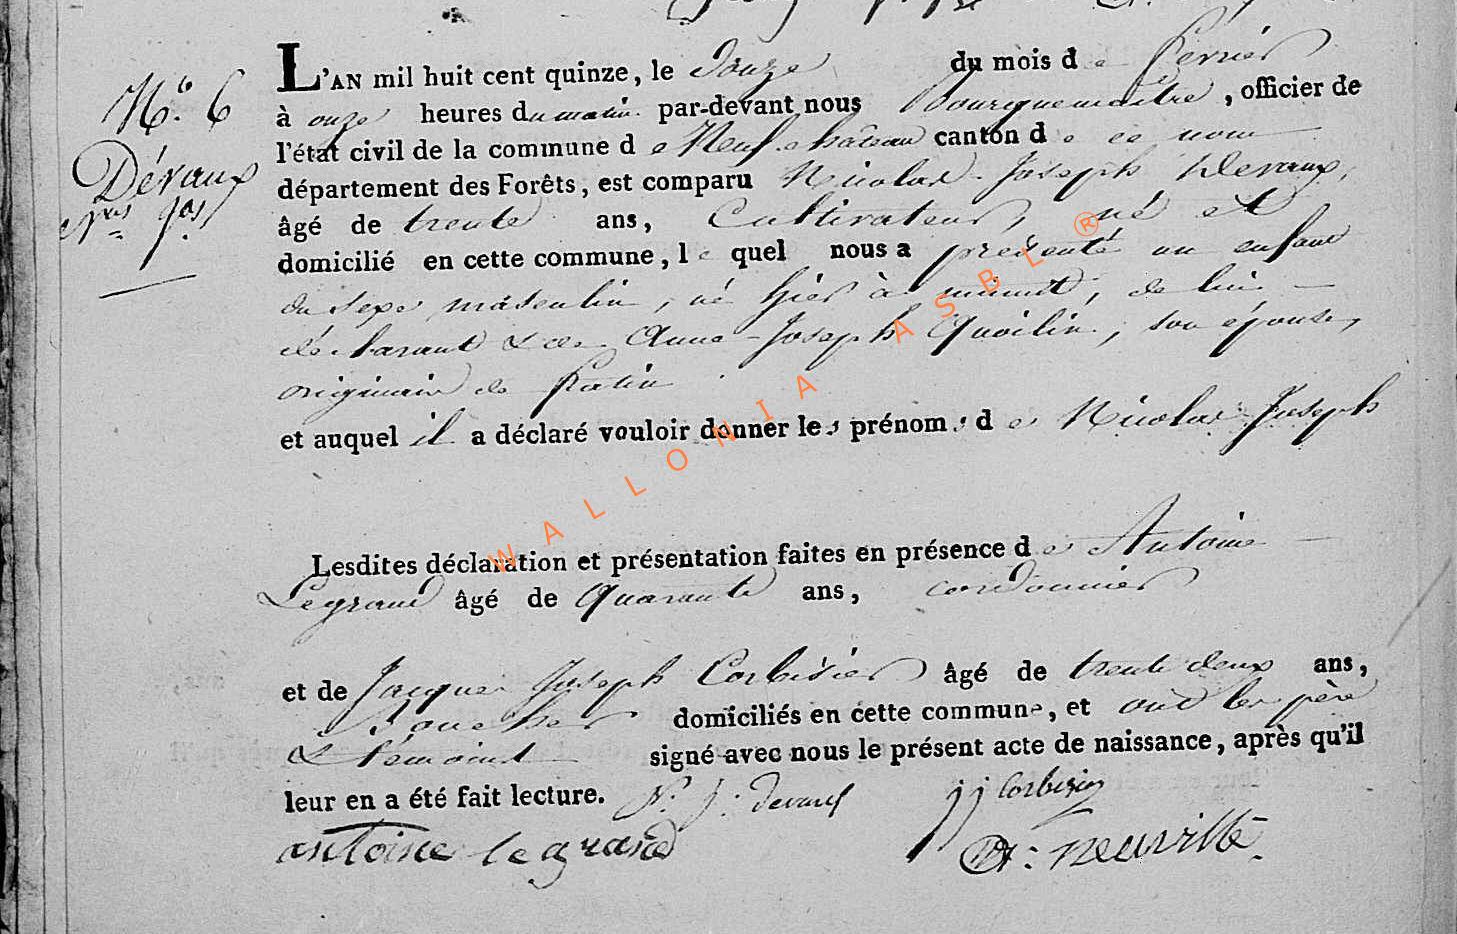 N.o 6
Dévaux
Nas Jos
L'AN mil huit cent quinze, le Douze du mois de Fevrier
à onze heures du matin par-devant nous Bourguemaitre, officier de
l'état civil de la commune de Neufchateau canton de ce nom
département des Forêts, est comparu Nicolas-Joseph Devaux,
âgé de trente ans, Cultivateur, né et
domicilié en cette commune, lequel nous a présenté un enfant
du sexe masculin, né hier à minuit, de lui
déclarant & de Anne-Joseph Quoilin, son épouse,
originaire de
et auquel il a déclaré vouloir donner les prénoms de Nicolas Joseph
Lesdites déclaration et présentation faites en présence de Antoine
Legrand âgé de Quarante ans, cordonnier
et de Jacques Joseph Corbisier âgé de trente deux ans,
Boucher domiciliés en cette commune, et ont les père
& témoins signé avec nous le présent acte de naissance, après qu'il
leur en a été fait lecture. N. J. Devaux jj Corbisier
antoine legrand neuville
WALLONIA ASBL ®